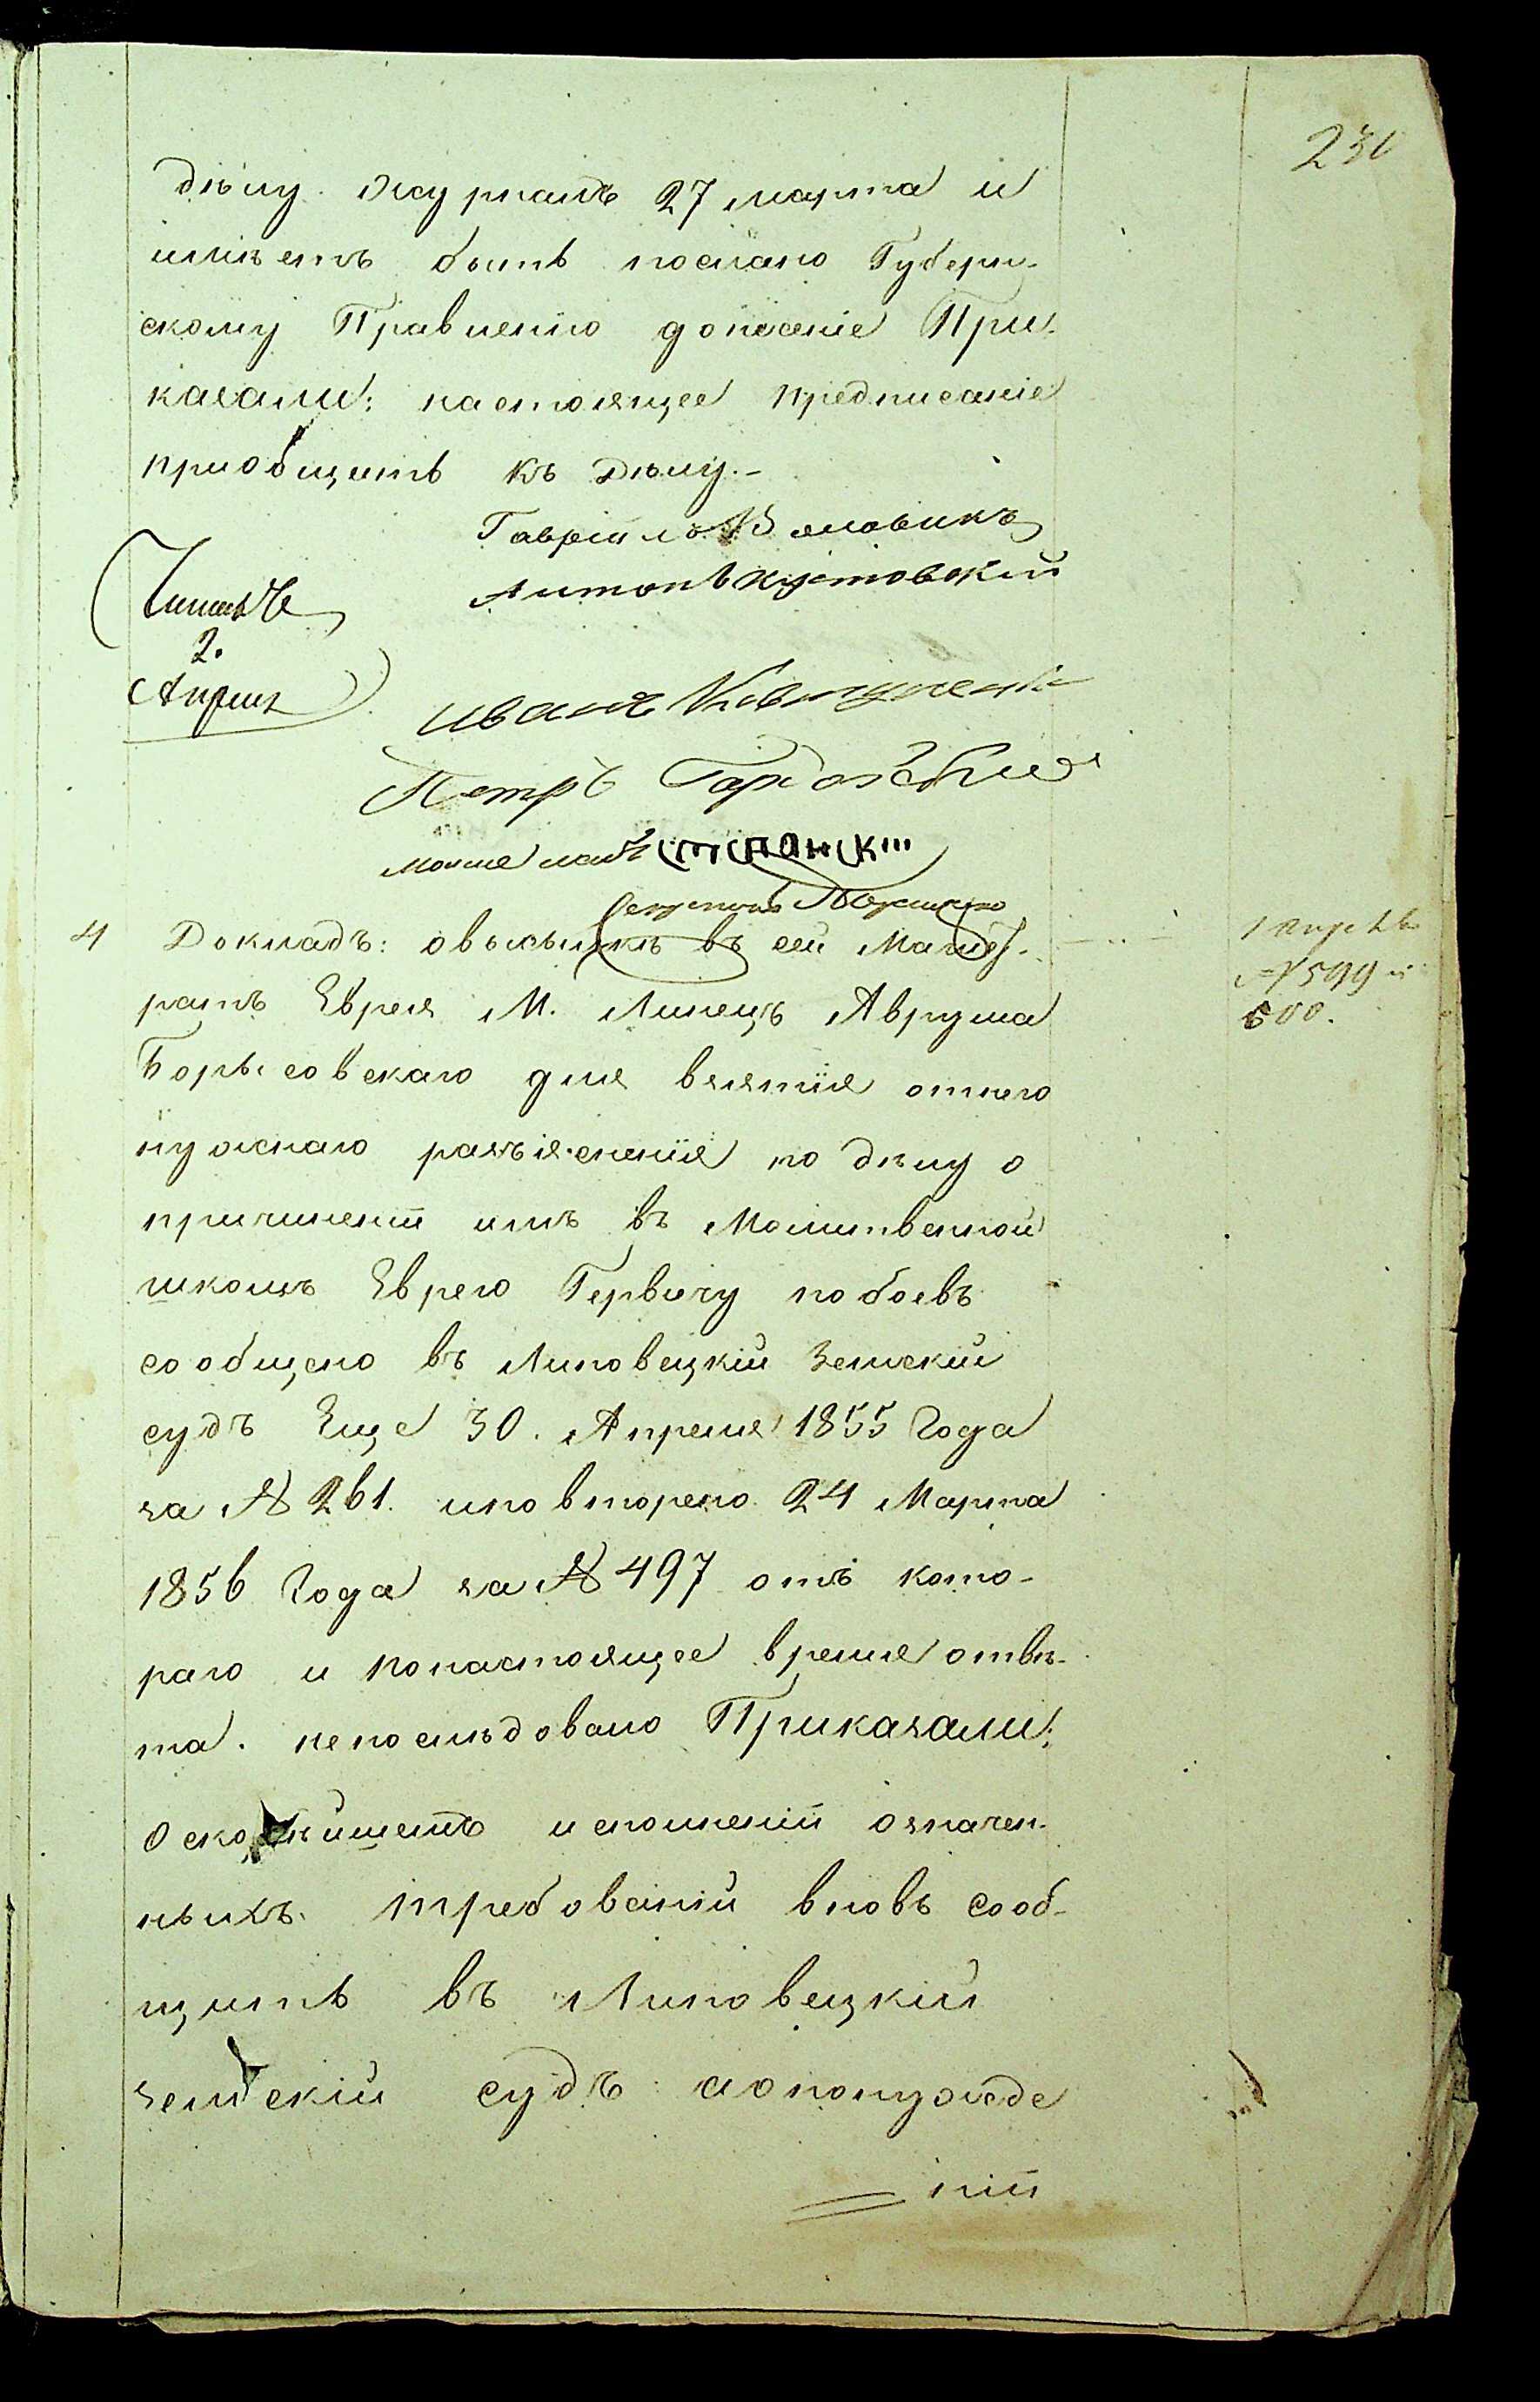 230
дѣлу журналъ 27 марта и
имѣетъ быть послано Губерн-
скому Правленію донесеніе При-
казали: настоящее предписаніе
приобщить къ дѣлу.-
Гавріилъ
Антонъ Кустовскій
Читалъ
2.
Апреля
Иванъ Ковтуненко
Петръ
4 Докладъ: о высылкѣ въ сей Магист-
ратъ Еврея М. Линецъ Аврума
Борисовскаго для взятія отнего
нужнаго разъясненія по дѣлу о
причиненіи имъ въ Молитвенной
школѣ Еврею Гервичу побоевъ
сообщено въ Липовецкій Земскій
судъ Еще 30. Апреля 1855 Года
за № 261. иповторено 24 Марта
1856 Года за № 497 отъ кото-
раго и понастоящее время отвѣ-
та. непослѣдовало Приказали:
О скорѣйшемъ исполненіи означен-
ныхъ требованій вновь сооб-
щить въ Липовецкій
земскій судъ
ніи
1 Апрель
№ 599 и
600.